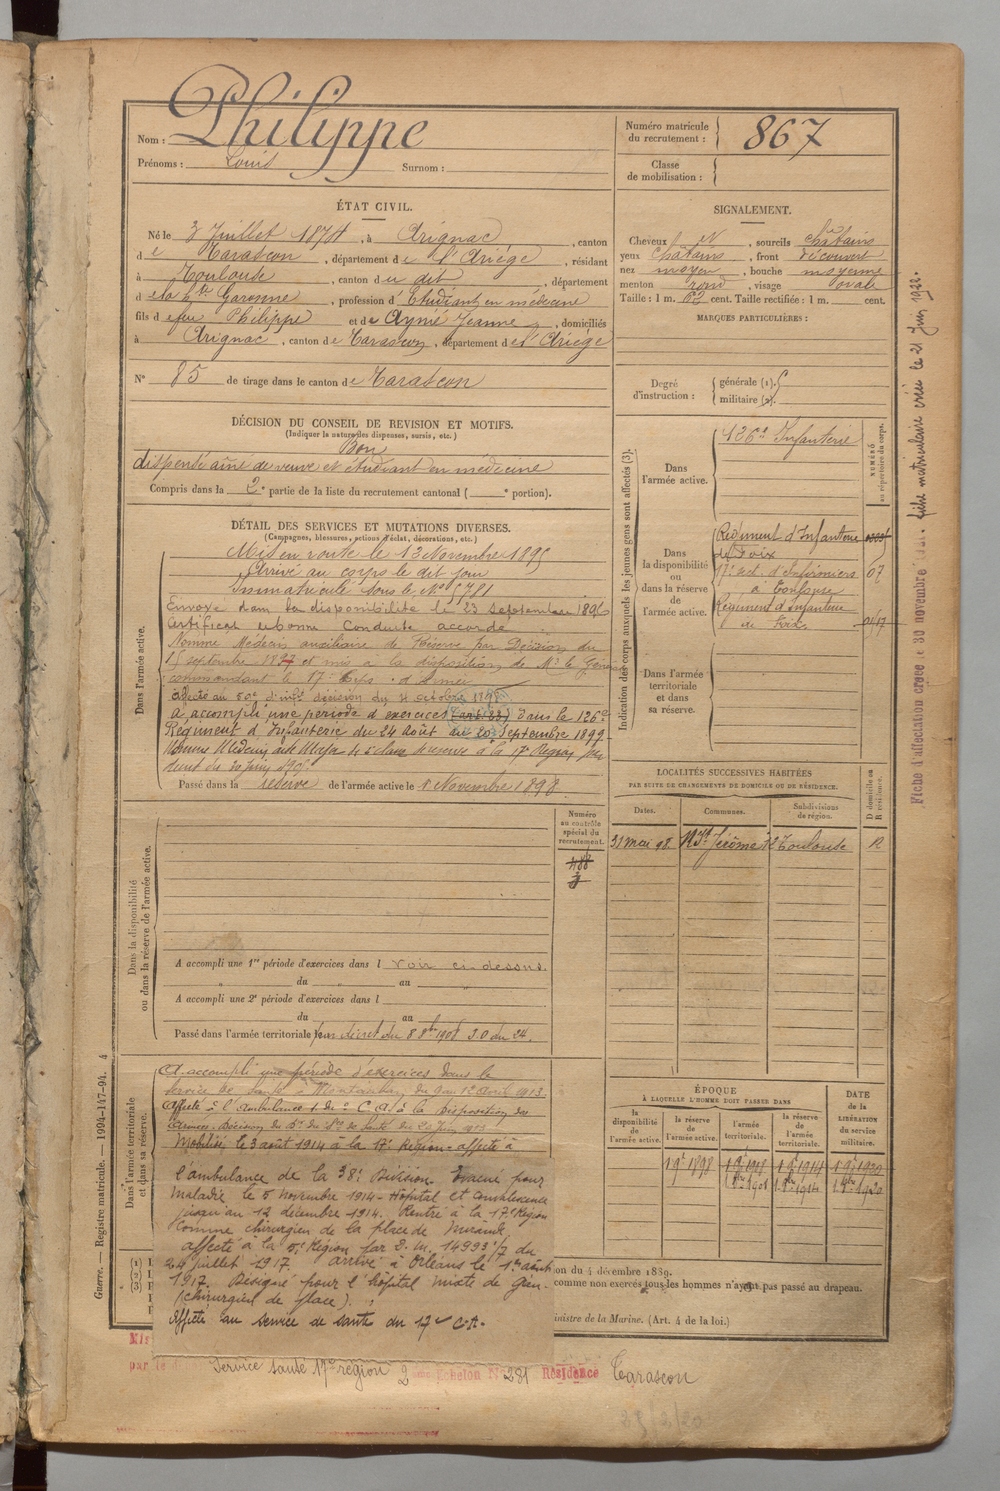 Nom : Philippe
Prénoms : Louis Surnom :
Numéro matricule du recrutement : 867
Classe de mobilisation :
ÉTAT CIVIL.
Né le 3 Juillet 1874, à Arignac, canton
de Tarascon, département de l'Ariège, résidant
à Toulouse, canton du dit, département
de la Hte Garonne, profession d'Etudiant en médecine
fils de feu Philippe et de Aynié Jeanne, domiciliés
à Arignac, canton de Tarascon, département de l'Ariège
N° 85 de tirage dans le canton de Tarascon
SIGNALEMENT.
Cheveux et, sourcils châtains
yeux châtains, front découvert
nez moyen, bouche moyenne
menton rond, visage ovale
Taille : 1 m. 62 cent. Taille rectifiée : 1 m. cent.
MARQUES PARTICULIÈRES :
Degré d'instruction : générale (1).
militaire (2).
DÉCISION DU CONSEIL DE REVISION ET MOTIFS.
(Indiquer la nature des dispenses, sursis, etc.)
Bon
dispensé aîné de veuve et étudiant en médecine
Compris dans la 2e partie de la liste du recrutement cantonal ( e portion).
DÉTAIL DES SERVICES ET MUTATIONS DIVERSES.
(Campagnes, blessures, actions d'éclat, décorations, etc.)
Dans l'armée active.
Mis en route le 13 Novembre 1895
Arrivé au corps le dit jour
Immatriculé sous le N° 5781
Envoyé dans la disponibilité le 23 septembre 1896
Certificat de bonne Conduite accordé
Nommé Médecin auxiliaire de Réserve par Décision du
15 septembre 1897 et mis à la disposition de Mr le Général
commandant le 17e Corps d'Armée
décision du 4 octobre 1898
A accompli une période d'exercices (art. 23) dans le 126e
Régiment d'Infanterie du 24 Août au 20 Septembre 1899
Nommé Médecin aide Major de 2e classe de réserve à la 17e Région par
décret du 20 juin
Passé dans la réserve de l'armée active le 1 Novembre 1898
Indication des corps auxquels les jeunes gens sont affectés (3).
NUMÉRO au répertoire du corps.
Dans l'armée active.
126e Infanterie
Dans la disponibilité ou dans la réserve de l'armée active.
Régiment d'Infanterie
de Foix
17e sect. d'Infirmiers 07
à Toulouse
Régiment d'Infanterie
de Foix
Dans l'armée territoriale et dans sa réserve.
LOCALITÉS SUCCESSIVES HABITÉES
PAR SUITE DE CHANGEMENTS DE DOMICILE OU DE RÉSIDENCE.
Dates. Communes. Subdivisions de région. D domicile ou R résidence.
31 mai 98 R. St Jérôme 12 Toulouse R
Dans la disponibilité ou dans la réserve de l'armée active.
Numéro au contrôle spécial du recrutement.
488
A accompli une 1re période d'exercices dans l voir ci-dessus.
du au
A accompli une 2e période d'exercices dans l
du au
Passé dans l'armée territoriale par décret du 8 8bre 1908 J.O du 24.
Dans l'armée territoriale et dans sa réserve.
A accompli une période d'exercices dans le
service de santé à Montauban du 9 au 12 avril 1913.
Affecté à l'Ambulance 1 du C.A. à la Disposition du
Mobilisé le 3 août 1914 à la 17e Région affecté à
l'ambulance de la 38e Division. Evacué pour
maladie le 5 novembre 1914 - Hôpital et convalescence
jusqu'au 12 décembre 1914. Rentré à la 17e Région
comme chirurgien de la place de Mirande.
affecté à la 5e Région par D.M. 14993 1/7 du
24 juillet 1917. arrivé à Orléans le 1er août
1917. Désigné pour l'hôpital mixte de Gien.
(chirurgien de place).
Affecté au service de santé du 17e C.A.
ÉPOQUE
À LAQUELLE L'HOMME DOIT PASSER DANS
la disponibilité de l'armée active. la réserve de l'armée active. l'armée territoriale. la réserve de l'armée territoriale.
DATE de la LIBÉRATION du service militaire.
on du 4 décembre 1889.
comme non exercés tous les hommes n'ayant pas passé au drapeau.
inistre de la Marine. (Art. 4 de la loi.)
par le
Service santé 17e région 2 Echelon N° 281 Résidence Tarascon
29/2/20
Guerre. — Registre matricule. — 1994-147-94. 4
Fiche d'affectation créée le 30 novembre
fiche matriculaire créée le 21 Juin 1922.